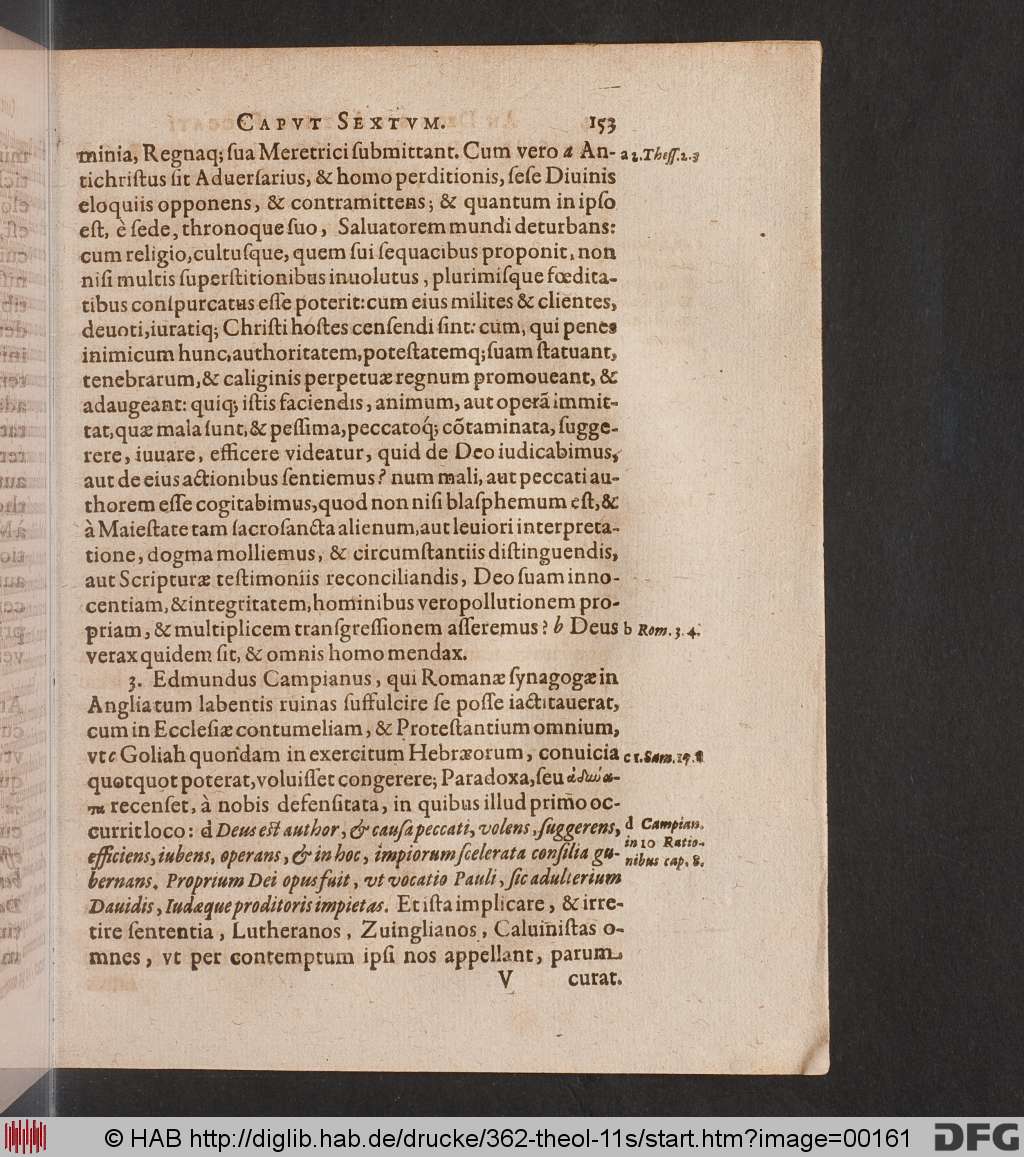 CAPVT SEXTVM. 153
minia, Regnaq; ſua Meretrici ſubmittant. Cum vero a An- a 2. Theſſ. 2. 3
tichriſtus ſit Aduerſarius, & homo perditionis, ſeſe Diuinis
eloquiis opponens, & contramittens; & quantum in ipſo
eſt, è ſede, thronoque ſuo, Saluatorem mundi deturbans:
cum religio, cultuſque, quem ſui ſequacibus proponit, non
niſi multis ſuperſtitionibus inuolutus, plurimiſque fœdita-
tibus conſpurcatus eſſe poterit: cum eius milites & clientes,
deuoti, iuratiq; Chriſti hoſtes cenſendi ſint: cum, qui penes
inimicum hunc, authoritatem, poteſtatemq; ſuam ſtatuant,
tenebrarum, & caliginis perpetuæ regnum promoueant, &
adaugeant: quiq; iſtis faciendis, animum, aut operã immit-
tat, quæ mala ſunt, & peſſima, peccatoq́; cõtaminata, ſugge-
rere, iuuare, efficere videatur, quid de Deo iudicabimus,
aut de eius actionibus ſentiemus? num mali, aut peccati au-
thorem eſſe cogitabimus, quod non niſi blaſphemum eſt, &
à Maieſtate tam ſacroſancta alienum, aut leuiori interpreta-
tione, dogma molliemus, & circumſtantiis diſtinguendis,
aut Scripturæ teſtimoniis reconciliandis, Deo ſuam inno-
centiam, & integritatem, hominibus vero pollutionem pro-
priam, & multiplicem tranſgreſſionem aſſeremus? b Deus b Rom. 3. 4.
verax quidem ſit, & omnis homo mendax.
3. Edmundus Campianus, qui Romanæ ſynagogæ in
Anglia tum labentis ruinas ſuffulcire ſe poſſe iactitauerat,
cum in Eccleſiæ contumeliam, & Proteſtantium omnium,
vt c Goliah quondam in exercitum Hebræorum, conuicia c 1. Sam.
quotquot poterat, voluiſſet congerere; Paradoxa, ſeu
recenſet, à nobis defenſitata, in quibus illud primo oc-
currit loco: d Deus eſt author, & cauſa peccati, volens, ſuggerens, d Campian.
efficiens, iubens, operans, & in hoc, impiorum ſcelerata conſilia gu- in 10 Ratio-
bernans. Proprium Dei opus fuit, vt vocatio Pauli, ſic adulterium nibus cap. 8.
Dauidis, Iudæque proditoris impietas. Et iſta implicare, & irre-
tire ſententia, Lutheranos, Zuinglianos, Caluiniſtas o-
mnes, vt per contemptum ipſi nos appellant, parum
V curat.
© HAB http://diglib.hab.de/drucke/362-theol-11s/start.htm?image=00161 DFG